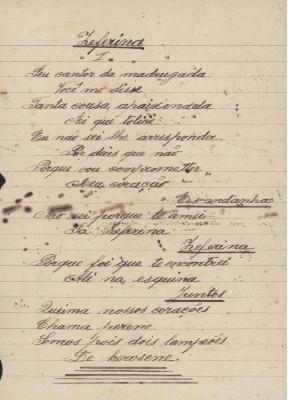 Zeferina
I
Seu cantor da madrugada
Você me disse
Tanta cousa, apaixondola
Sei que tolice
Eu não sei lhe arresponder
Por deus que não
Porque vou comprometter
Meu coração
Escandanhas
Não sei porque te amei
Tá Zeferina
Zeferina
Porque foi que te encontrei
Ali na esquina
Juntos
Queima nossos corações
Chama perene
Somos pois dois lampeões
De kerosene.